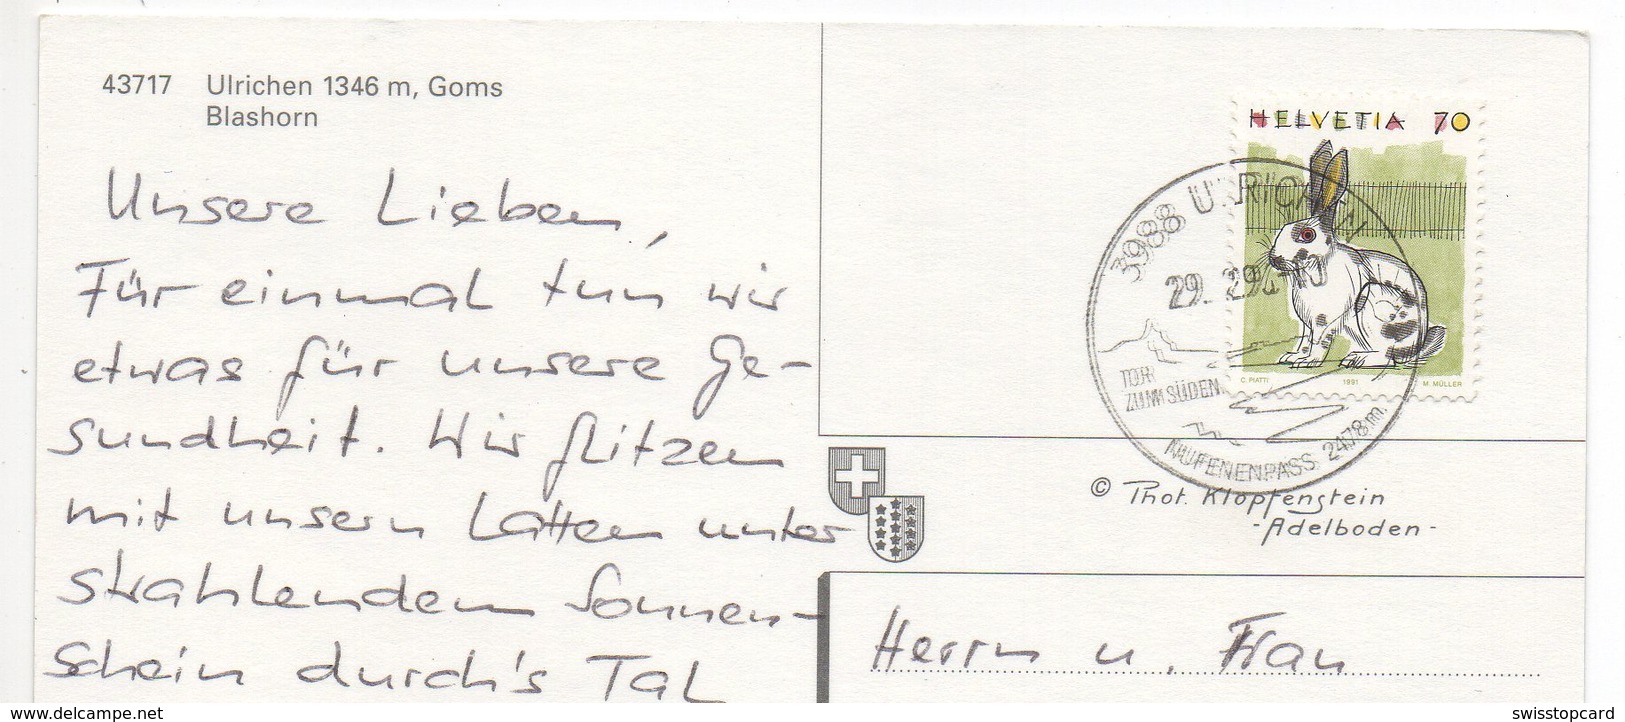 43717 Ulrichen 1346 m, Goms
Blashorn
Unsere Lieben,
Für einmal tun wir
etwas für unsere Ge-
sundheit. Wir flitzen
mit unsern Latten unter
strahlendem Sonnen-
schein durch's Tal
HELVETIA 70
C. PIATTI 1991 M. MÜLLER
3988 ULRICHEN
TOR
ZUM SÜDEN
NUFENENPASS 2478m
© Phot. Klopfenstein
-Adelboden-
Herrn u. Frau
www.delcampe.net
swisstopcard